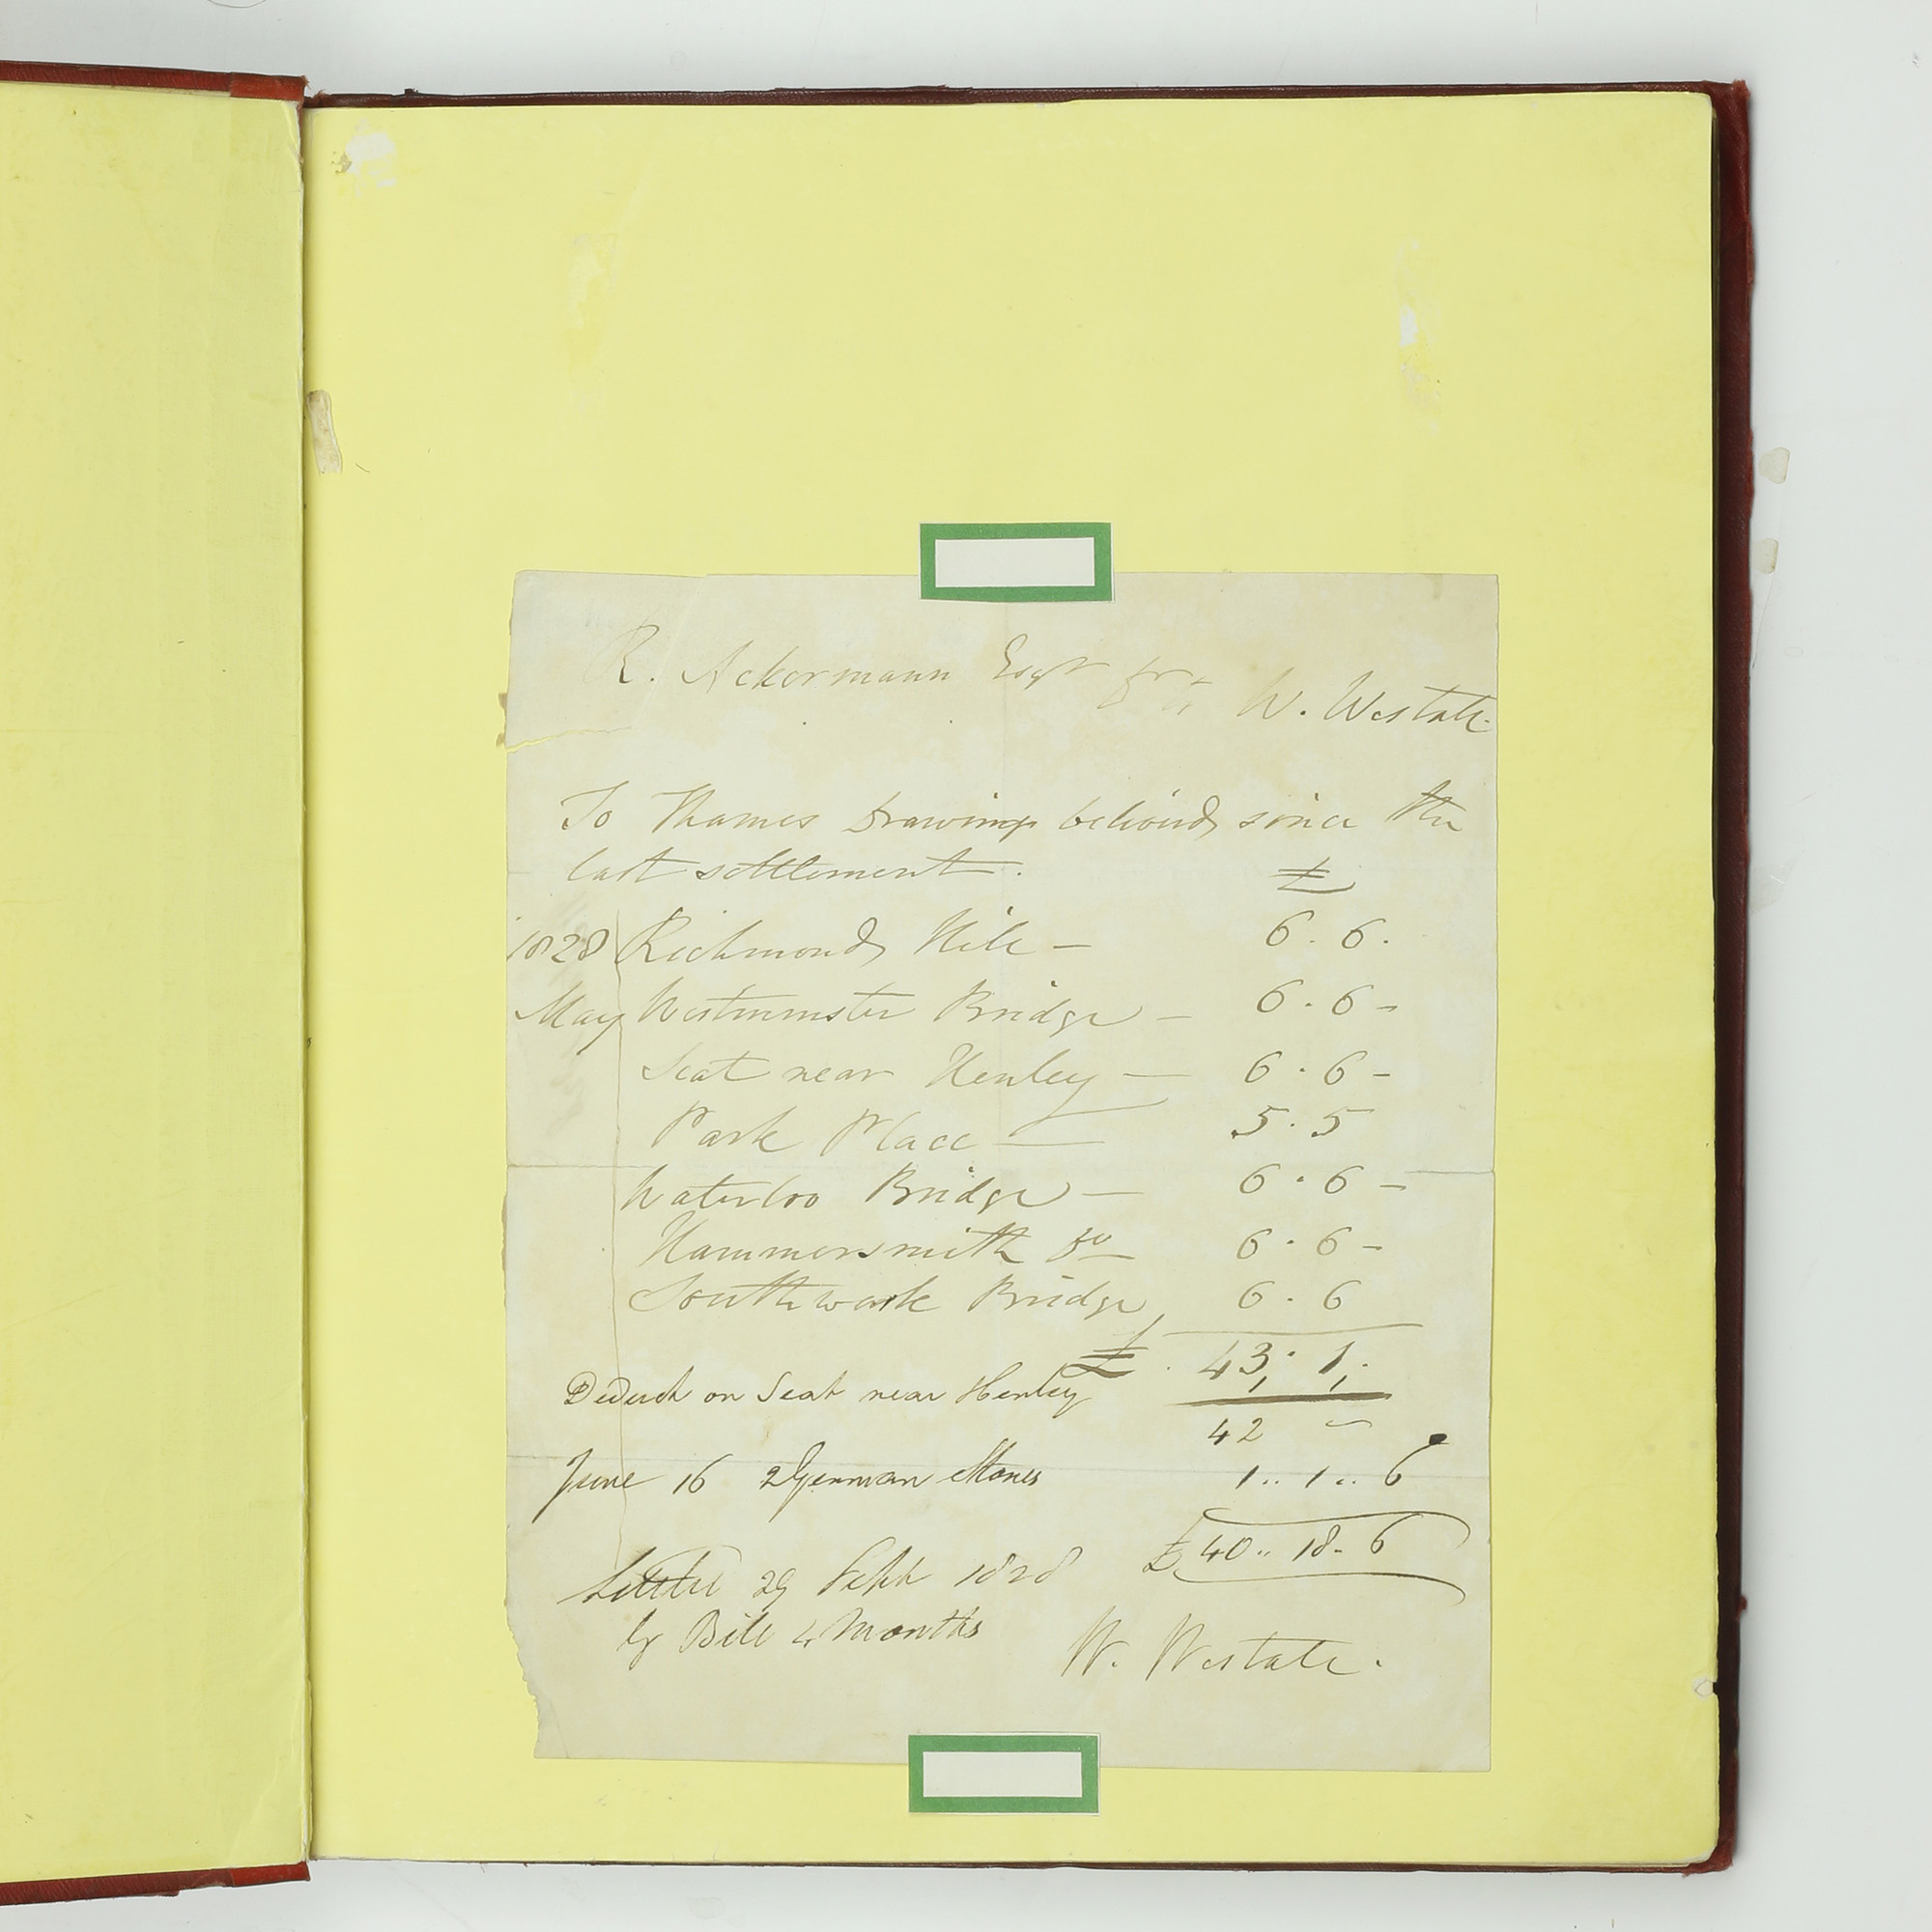 R. Ackermann Esqr Dr to W. Westall
To Thames Drawings delivered since the
last settlement.
£
1828 Richmond Hill — 6. 6.
May Westminster Bridge — 6. 6 -
Seat near Henley — 6. 6 -
Park Place — 5. 5
Waterloo Bridge — 6. 6 -
Hammersmith Do — 6. 6 -
Southwark Bridge 6. 6
£. 43. 1.
Deduct on Seat near Henley 1, 1,
42 -
June 16 2 German Stones 1.. 1.. 6
£ 40.. 18. 6
Settled 29 Sept 1828
by Bill 4 Months
W. Westall.